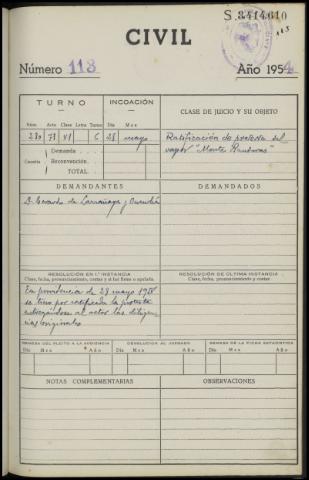 S.3414610
113
CIVIL
Número 113 Año 1954
TURNO
INCOACIÓN
CLASE DE JUICIO Y SU OBJETO
Núm. Acto Clase Letra Día Mes
280 73 VI C 28 mayo
Ratificación de protesta del
vapor "Monte
Cuantía
Demanda
Reconvención
TOTAL
DEMANDANTES
DEMANDADOS
D. Gerardo de Larrañaga y
RESOLUCIÓN EN 1ª INSTANCIA
Clase, fecha, pronunciamiento, costas y si fué firme o apelada.
RESOLUCIÓN DE ÚLTIMA INSTANCIA
Clase, fecha, pronunciamiento y costas
En providencia de 29 mayo 1954
se tuvo por ratificada la protesta
entregándose al actor las diligen-
cias originales
REMESA DEL PLEITO A LA AUDIENCIA
DEVOLUCIÓN AL JUZGADO
REMESA DE LA FICHA ESTADÍSTICA
Día Mes Año Día Mes Año Día Mes Año
NOTAS COMPLEMENTARIAS
OBSERVACIONES